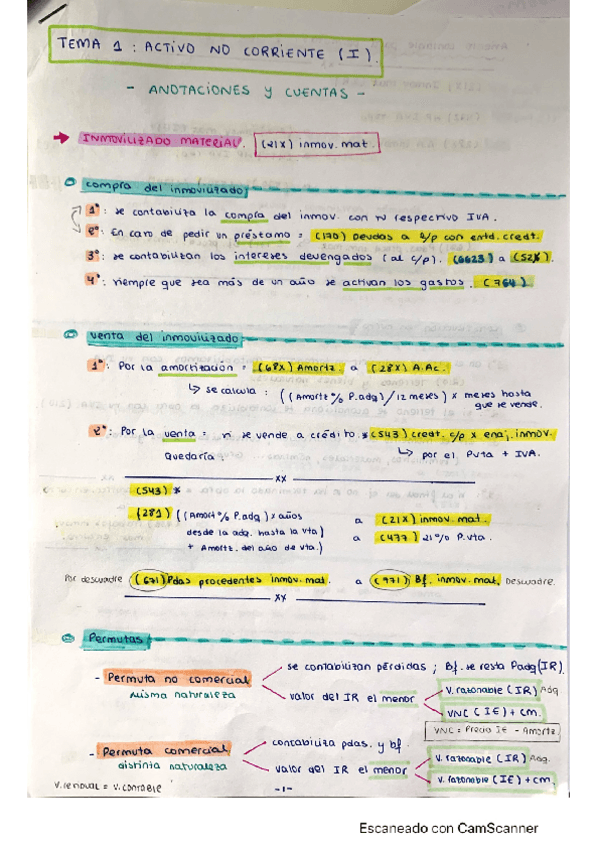 TEMA 1 : ACTIVO NO CORRIENTE (I).
- ANOTACIONES Y CUENTAS -
INMOVILIZADO MATERIAL. (21X) inmov. mat.
compra del inmovilizado
1º: se contabiliza la compra del inmov. con su respectivo IVA.
2º: En caso de pedir un préstamo = (170) Deudas a l/p con entd. credt.
3º: se contabilizan los intereses devengados (al c/p). (6623) a (527).
4º: siempre que sea más de un año se activan los gastos. (764)
venta del inmovilizado
1º: Por la amortización = (68X) Amortz. a (28X) A.Ac.
se calcula : ((Amort% P.adq)/12 meses) x meses hasta
que se vende.
2º: Por la venta = si se vende a crédito * (543) credt. c/p x enaj. inmov.
Quedaría : por el Pvta + IVA.
xx
(543) *
(281) ((Amort% P.adq) x años a (21X) inmov. mat.
desde la adq. hasta la vta) a (477) 21% P.vta.
+ Amortz. del año de vta.)
Por descuadre (671) Pdas procedentes inmov. mat. a (771) Bf. inmov. mat. Descuadre.
xx
Permutas
se contabilizan pérdidas ; Bf. se resta Padq (IR).
- Permuta no comercial
misma naturaleza
valor del IR el menor
V. razonable (IR) Adq
VNC (IE) + CM.
VNC = Precio IE - Amortz.
- Permuta comercial
distinta naturaleza
contabiliza pdas. y bf.
valor del IR el menor
V. razonable (IR) Adq.
V. razonable (IE) + cm.
V. residual = V. contable
-1-
Escaneado con CamScanner